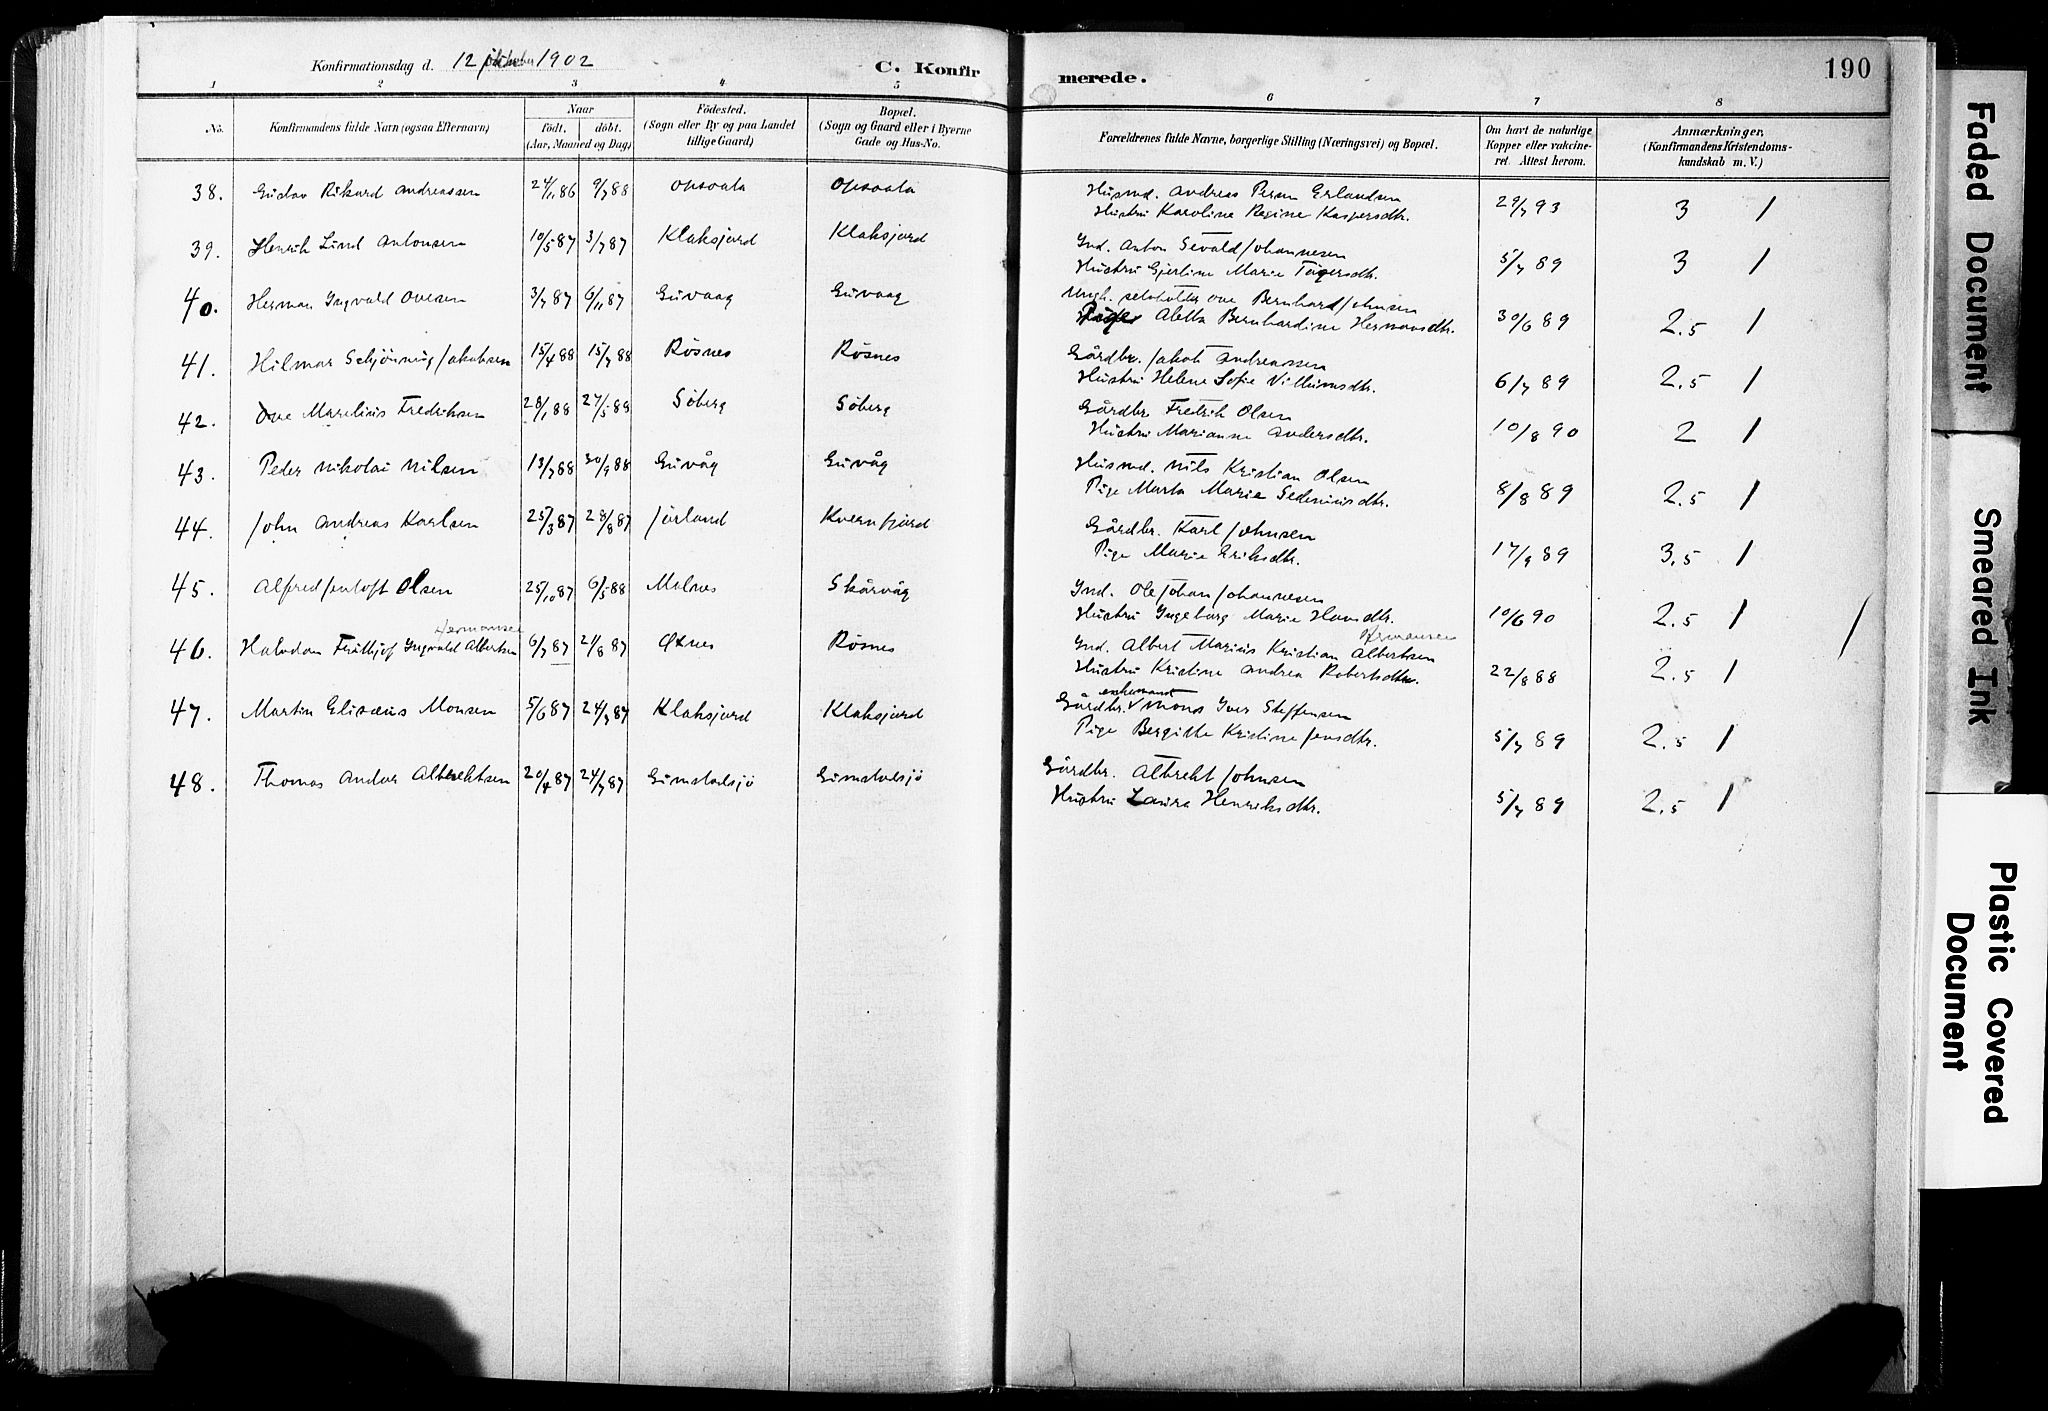 Konfirmationsdag d. 12 oktober 1902
C. Konfirmerede.
190
1 2 3 4 5 6 7 8
No. Konfirmandens fulde Navn (ogsaa Efternavn) Naar født. døbt. (Aar, Maaned og Dag) Fødested. (Sogn eller By og paa Landet tillige Gaard) Bopæl. (Sogn og Gaard eller i Byerne Gade og Hus-No. Forældrenes fulde Navne, borgerlige Stilling (Næringsvei) og Bopæl. Om havt de naturlige Kopper eller vaccineret. Attest herom. Anmærkninger. (Konfirmandens Kristendomskundskab m. V.)
38. Gustav Rikard Andreassen 24/11 86 9/7 88 Opsaata Opsaata Husmd. Andreas Erlandsen
Hustru Karoline Regine Kaspersdtr. 29/7 93 3 1
39. Henrik Lind Antonsen 10/5 87 3/7 87 Klaksjord Klaksjord Ind. Anton Sevald Johannesen
Hustru Gjertine Marie Tøgersdtr. 5/7 89 3 1
40. Herman Ingvald Ovesen 3/7 87 6/11 87 Guvaag Guvaag Ungk. Ove Bernhard Johnsen
Pige Aletta Bernhardine Hermansdtr. 30/6 89 2.5 1
41. Hilmar Schjønning Jakobsen 15/4 88 15/7 88 Røsnes Røsnes Gårdbr. Jakob Andreassen
Hustru Helene Sofie Villumsdtr. 6/7 89 2.5 1
42. Ove Marelius Fredriksen 28/1 88 27/5 88 Søberg Søberg Gårdbr. Fredrik Olsen
Hustru Marianne Andersdtr. 10/8 90 2 1
43. Peder Nikolai Nilsen 13/7 88 30/9 88 Guvåg Guvåg Husmd. Nils Kristian Olsen
Pige Marta Marie Sedeniusdtr. 8/8 89 2.5 1
44. John Andreas Karlsen 25/3 87 28/8 87 Jørland Kvernfjord Gårdbr. Karl Johnsen
Pige Marie Eriksdtr. 17/9 89 3.5 1
45. Alfred Jentoft Olsen 25/10 87 6/5 88 Melnes Skårvåg Ind. Ole Johan Johannesen
Hustru Ingeborg Marie Hansdtr. 10/6 90 2.5 1
Hermansen Hermansen
46. Halvdan Fritthjof Ingvald Albertsen 6/7 87 21/8 87 Øxnes Røsnes Ind. Albert Marius Kristian Albertsen
Hustru Kristine Andrea Robertsdtr. 22/8 88 2.5 1
enkemand
47. Martin Elisæus Monsen 5/6 87 24/7 87 Klaksjord Klaksjord Gårdbr. Mons Iver Steffensen
Pige Bergitte Kristine Jensdtr. 5/7 89 2.5 1
48. Thomas Andor Albrektsen 20/4 87 24/7 87 Gimstadsjø Gimstadsjø Gårdbr. Albrekt Johnsen
Hustru Laura Henriksdtr. 5/7 89 2.5 1
Faded Document
Smeared Ink
Plastic Covered
Document